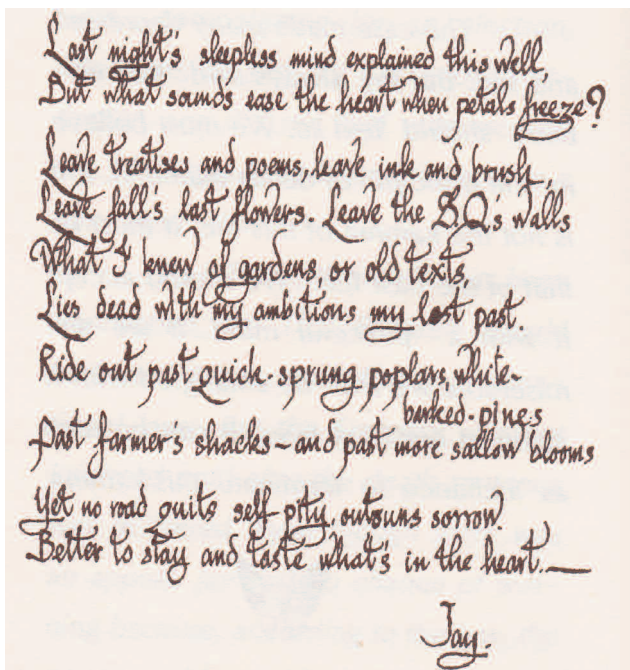 Last night's sleepless mind explained this well,
But what sounds ease the heart when petals freeze?
Leave treatises and poems, leave ink and brush
Leave fall's last flowers. Leave the S.Q.'s walls
What I knew of gardens, or old texts,
Lies dead with my ambitions, my lost past.
Ride out past quick-sprung poplars, white-
barked-pines
Past farmer's shacks - and past more sallow blooms
Yet no road quits self-pity, outruns sorrow.
Better to stay and taste what's in the heart.
Jay.